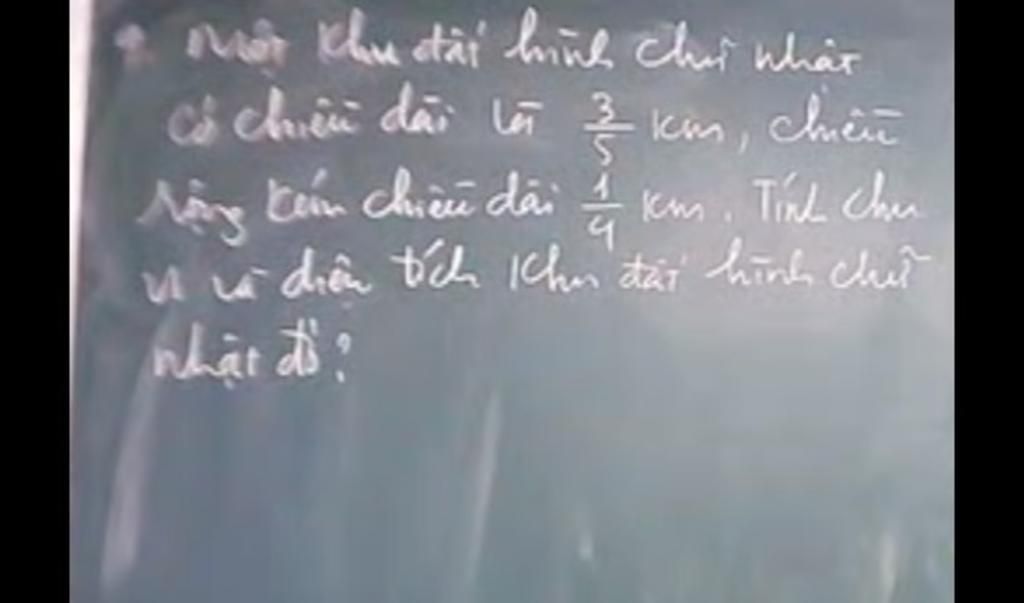 Một khu đất hình chữ nhật
có chiều dài là 3/5 km, chiều
rộng kém chiều dài 1/4 km. Tính chu
vi và diện tích khu đất hình chữ
nhật đó?